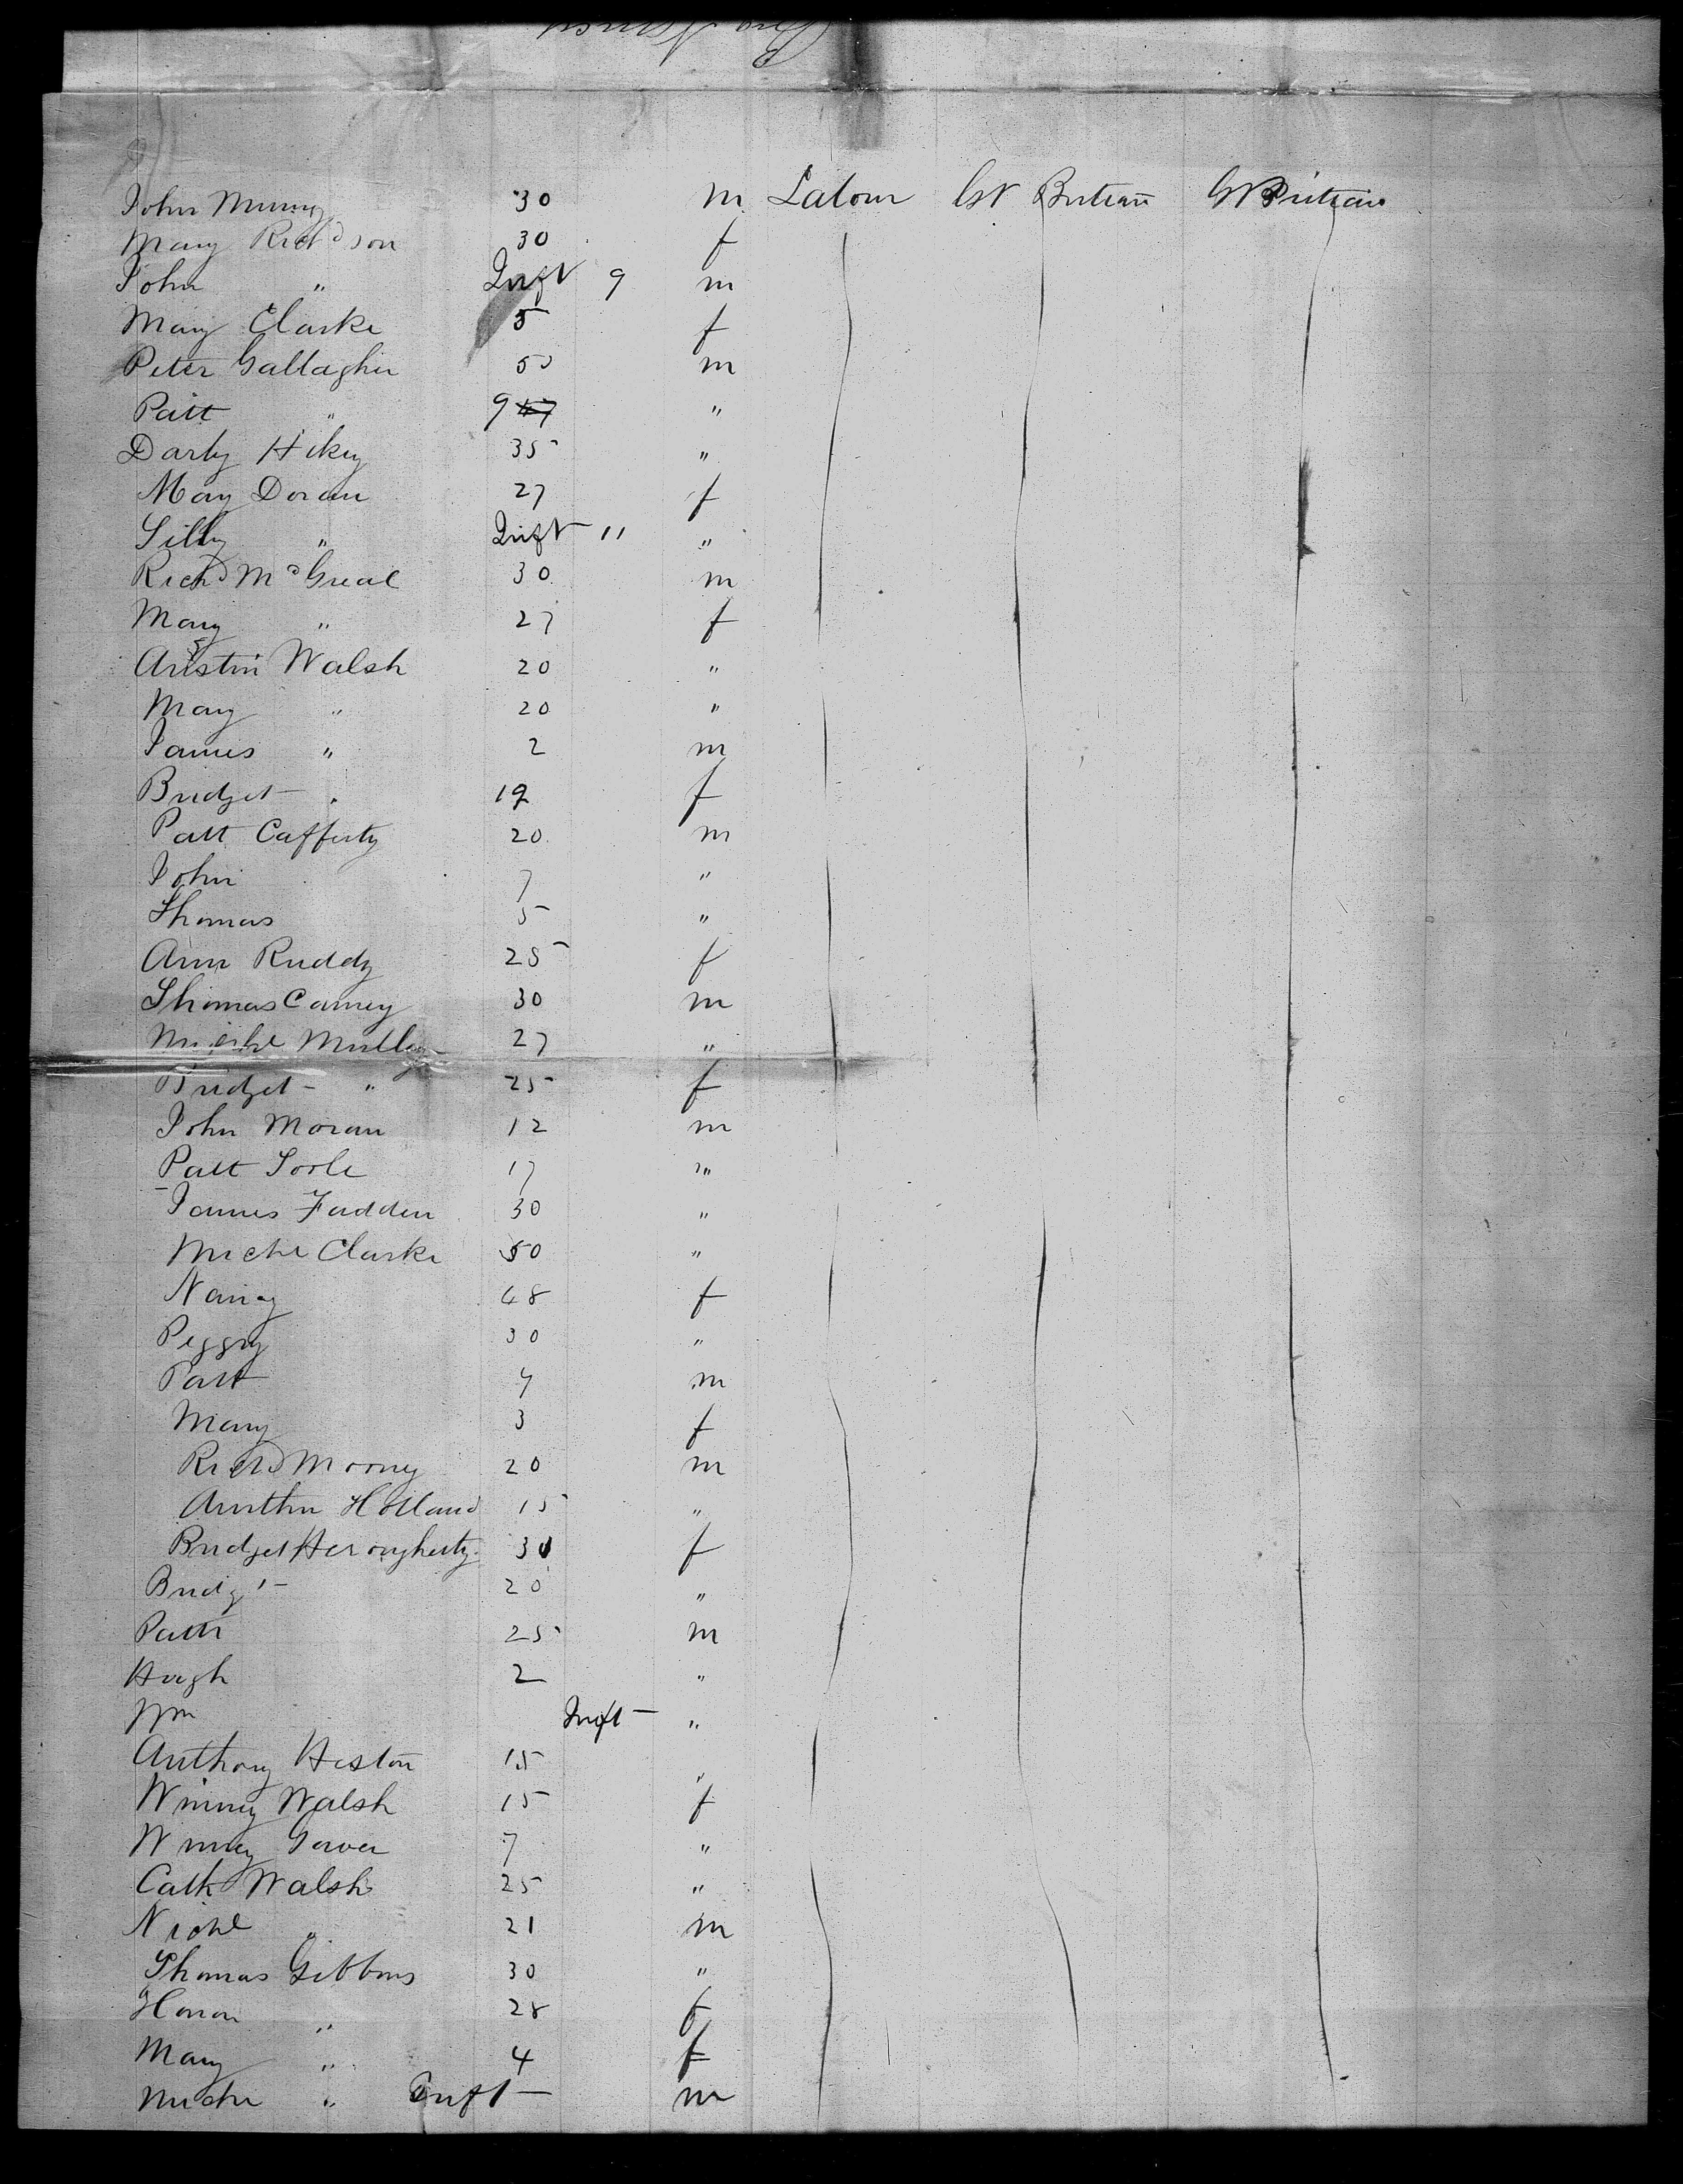 John Murray 30 m Labour Gt Britain Gt Britain
Mary Richdson 30 f
John " Inft 9 m
Mary Clarke 5 f
Peter Gallagher 50 m
Patt " 9 "
Darby Hikey 35 "
Mary Doran 27 f
Silly " Inft " "
Richd McGreal 30 m
Mary " 27 f
Austin Walsh 20 "
Mary " 20 "
James " 2 m
Bridget " 19 f
Patt Cafferty 20 m
John 7 "
Thomas 5 "
Ann Ruddy 25 f
Thomas Carney 30 m
Michl 27 "
Bridget " 25 f
John Moran 12 m
Patt Toole 17 "
James Fadden 30 "
Michl Clarke 50 "
Nancy 48 f
Peggy 30 "
Patt m
Mary 3 f
Richd Moony 20 m
Holland 15 "
Bridget f
Bridgt 20 "
Pattk 25 m
Hugh 2 "
Wm Inft "
Anthony Heston 15 "
Winney Walsh 15 f
Winney 7 "
Cath Walsh 25 "
" 21 m
Thomas Gibbons 30 "
Honor " 28 f
Mary " 4 f
Michl " Inft m